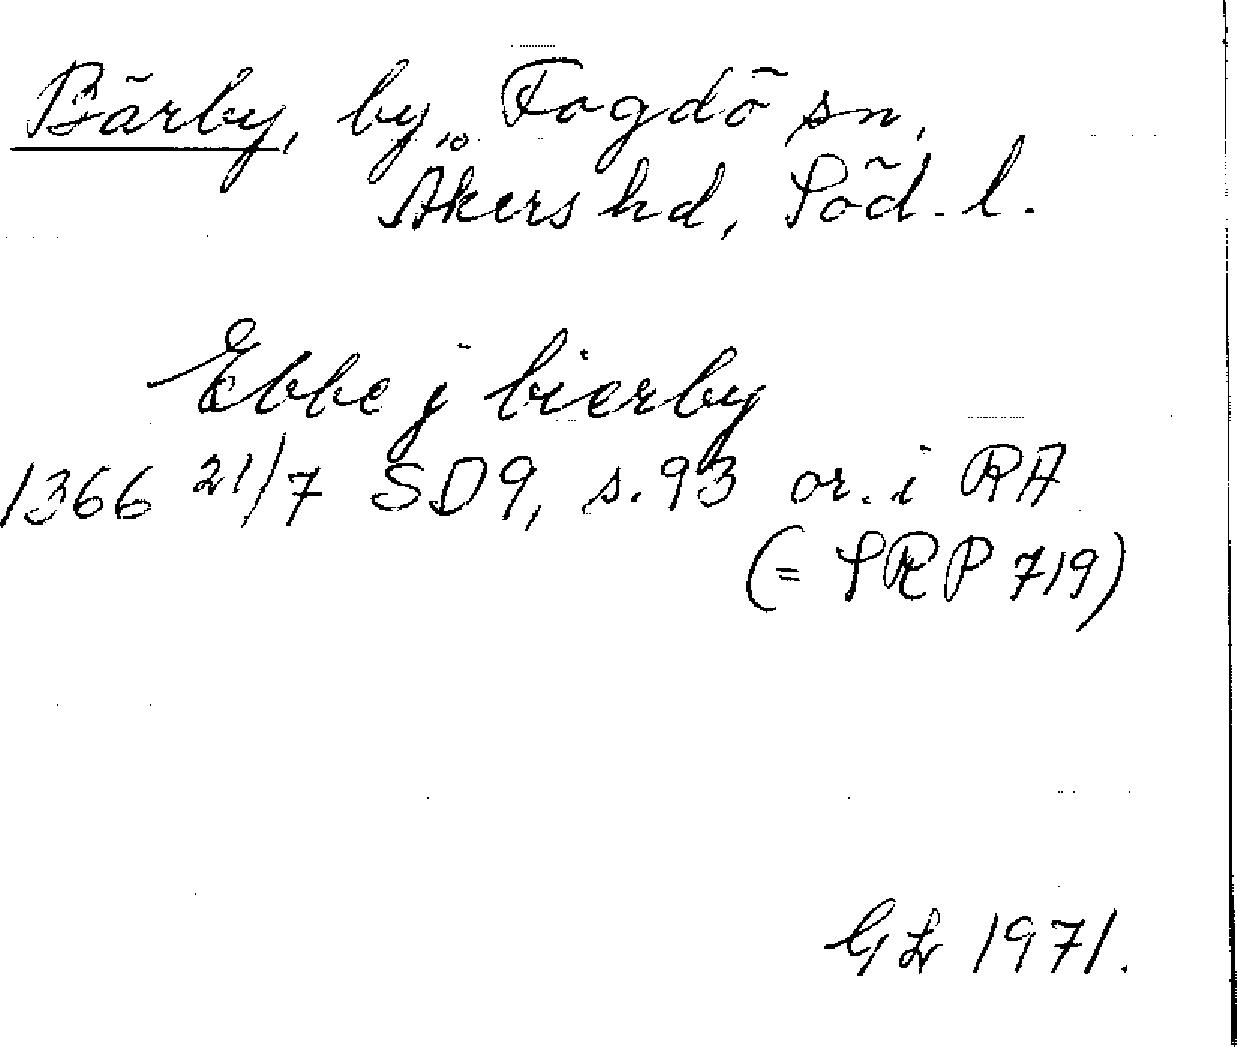 Bärby, by, Fogdö sn,
Åkers hd, Söd. l.
Ebbe j bierby
1366 21/7 SD9, s.93 or. i RA
(= SRP 719)
GLr 1971.